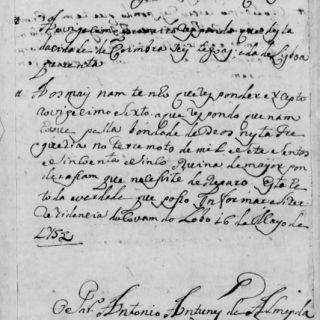 Ao vigecimo primeiro respondo que dista
da cidade de Coimbra seis legoas, e da de Lisboa
quarenta
Aos mais nam tenho que responder excepto
ao vigecimo sexto, a que respondo que nam
houve pella bondade de Deos nesta fre
guezia no terremoto de mil e sete sentos
e sincoenta e sinco Ruina de mayor pon
derasam que necesite de Reparo. Esta he
toda a verdade que posso Informar e
Rezidencia do Covam do Lobo 16 de Mayo de
1758
O e Par.º Antonio Antunes de Almeyda